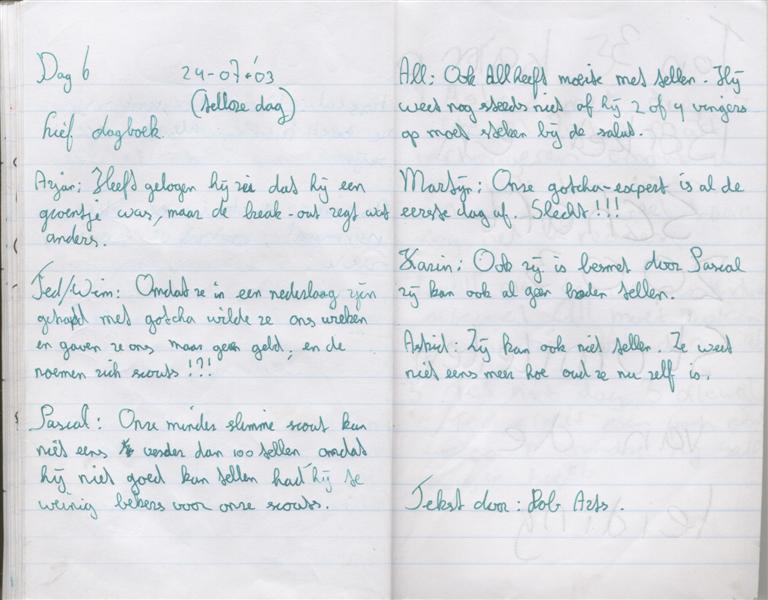 Dag 6 24-07-'03
(telloze dag)
Lief dagboek
Arjan: Heeft gelogen hij zei dat hij een
groentje was, maar de break-out zegt wat
anders.
Ted/Wim: Omdat ze in een nederlaag zijn
gehapt met gotcha wilde ze ons wreken
en gaven ze ons maar geen geld, en de
noemen zich scouts !?!
Pascal: Onze minder slimme scout kan
niet eens verder dan 100 tellen omdat
hij niet goed kan tellen had hij te
weinig bekers voor onze scouts.
All: Ook All heeft moeite met tellen. Hij
weet nog steeds niet of hij 2 of 4 vingers
op moet steken bij de saluut.
Martijn: Onze gotcha-expert is al de
eerste dag af. Slecht!!!
Karin: Ook zij is besmet door Pascal
zij kan ook al geen broden tellen.
Astrid: Zij kan ook niet tellen. Ze weet
niet eens meer hoe oud ze nu zelf is.
Tekst door: Rob Arts.